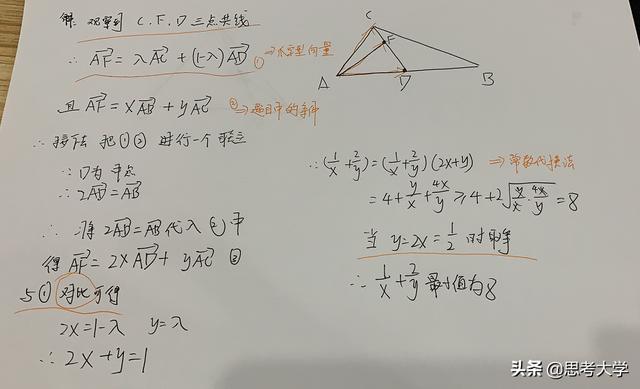 解：观察到 C、F、D 三点共线
∴ AF = λAC + (1-λ)AD ① ⇒ 爪型向量
且 AF = xAB + yAC ② ⇒ 题目中的条件
∴ 接下去 把①② 进行一个联立
∵ D为中点
∴ 2AD = AB
∴ 将 2AD = AB 代入 ② 中
得 AF = 2xAD + yAC ③
与① 对比可得
2x = 1-λ y = λ
∴ 2x + y = 1
C
F
A
D
B
∴ (1/x + 2/y) = (1/x + 2/y)(2x+y) ⇒ 常数代换法
= 4 + y/x + 4x/y ≥ 4 + 2√(y/x · 4x/y) = 8
当 y = 2x = 1/2 时取等
∴ 1/x + 2/y 最小值为 8
头条 @思考大学